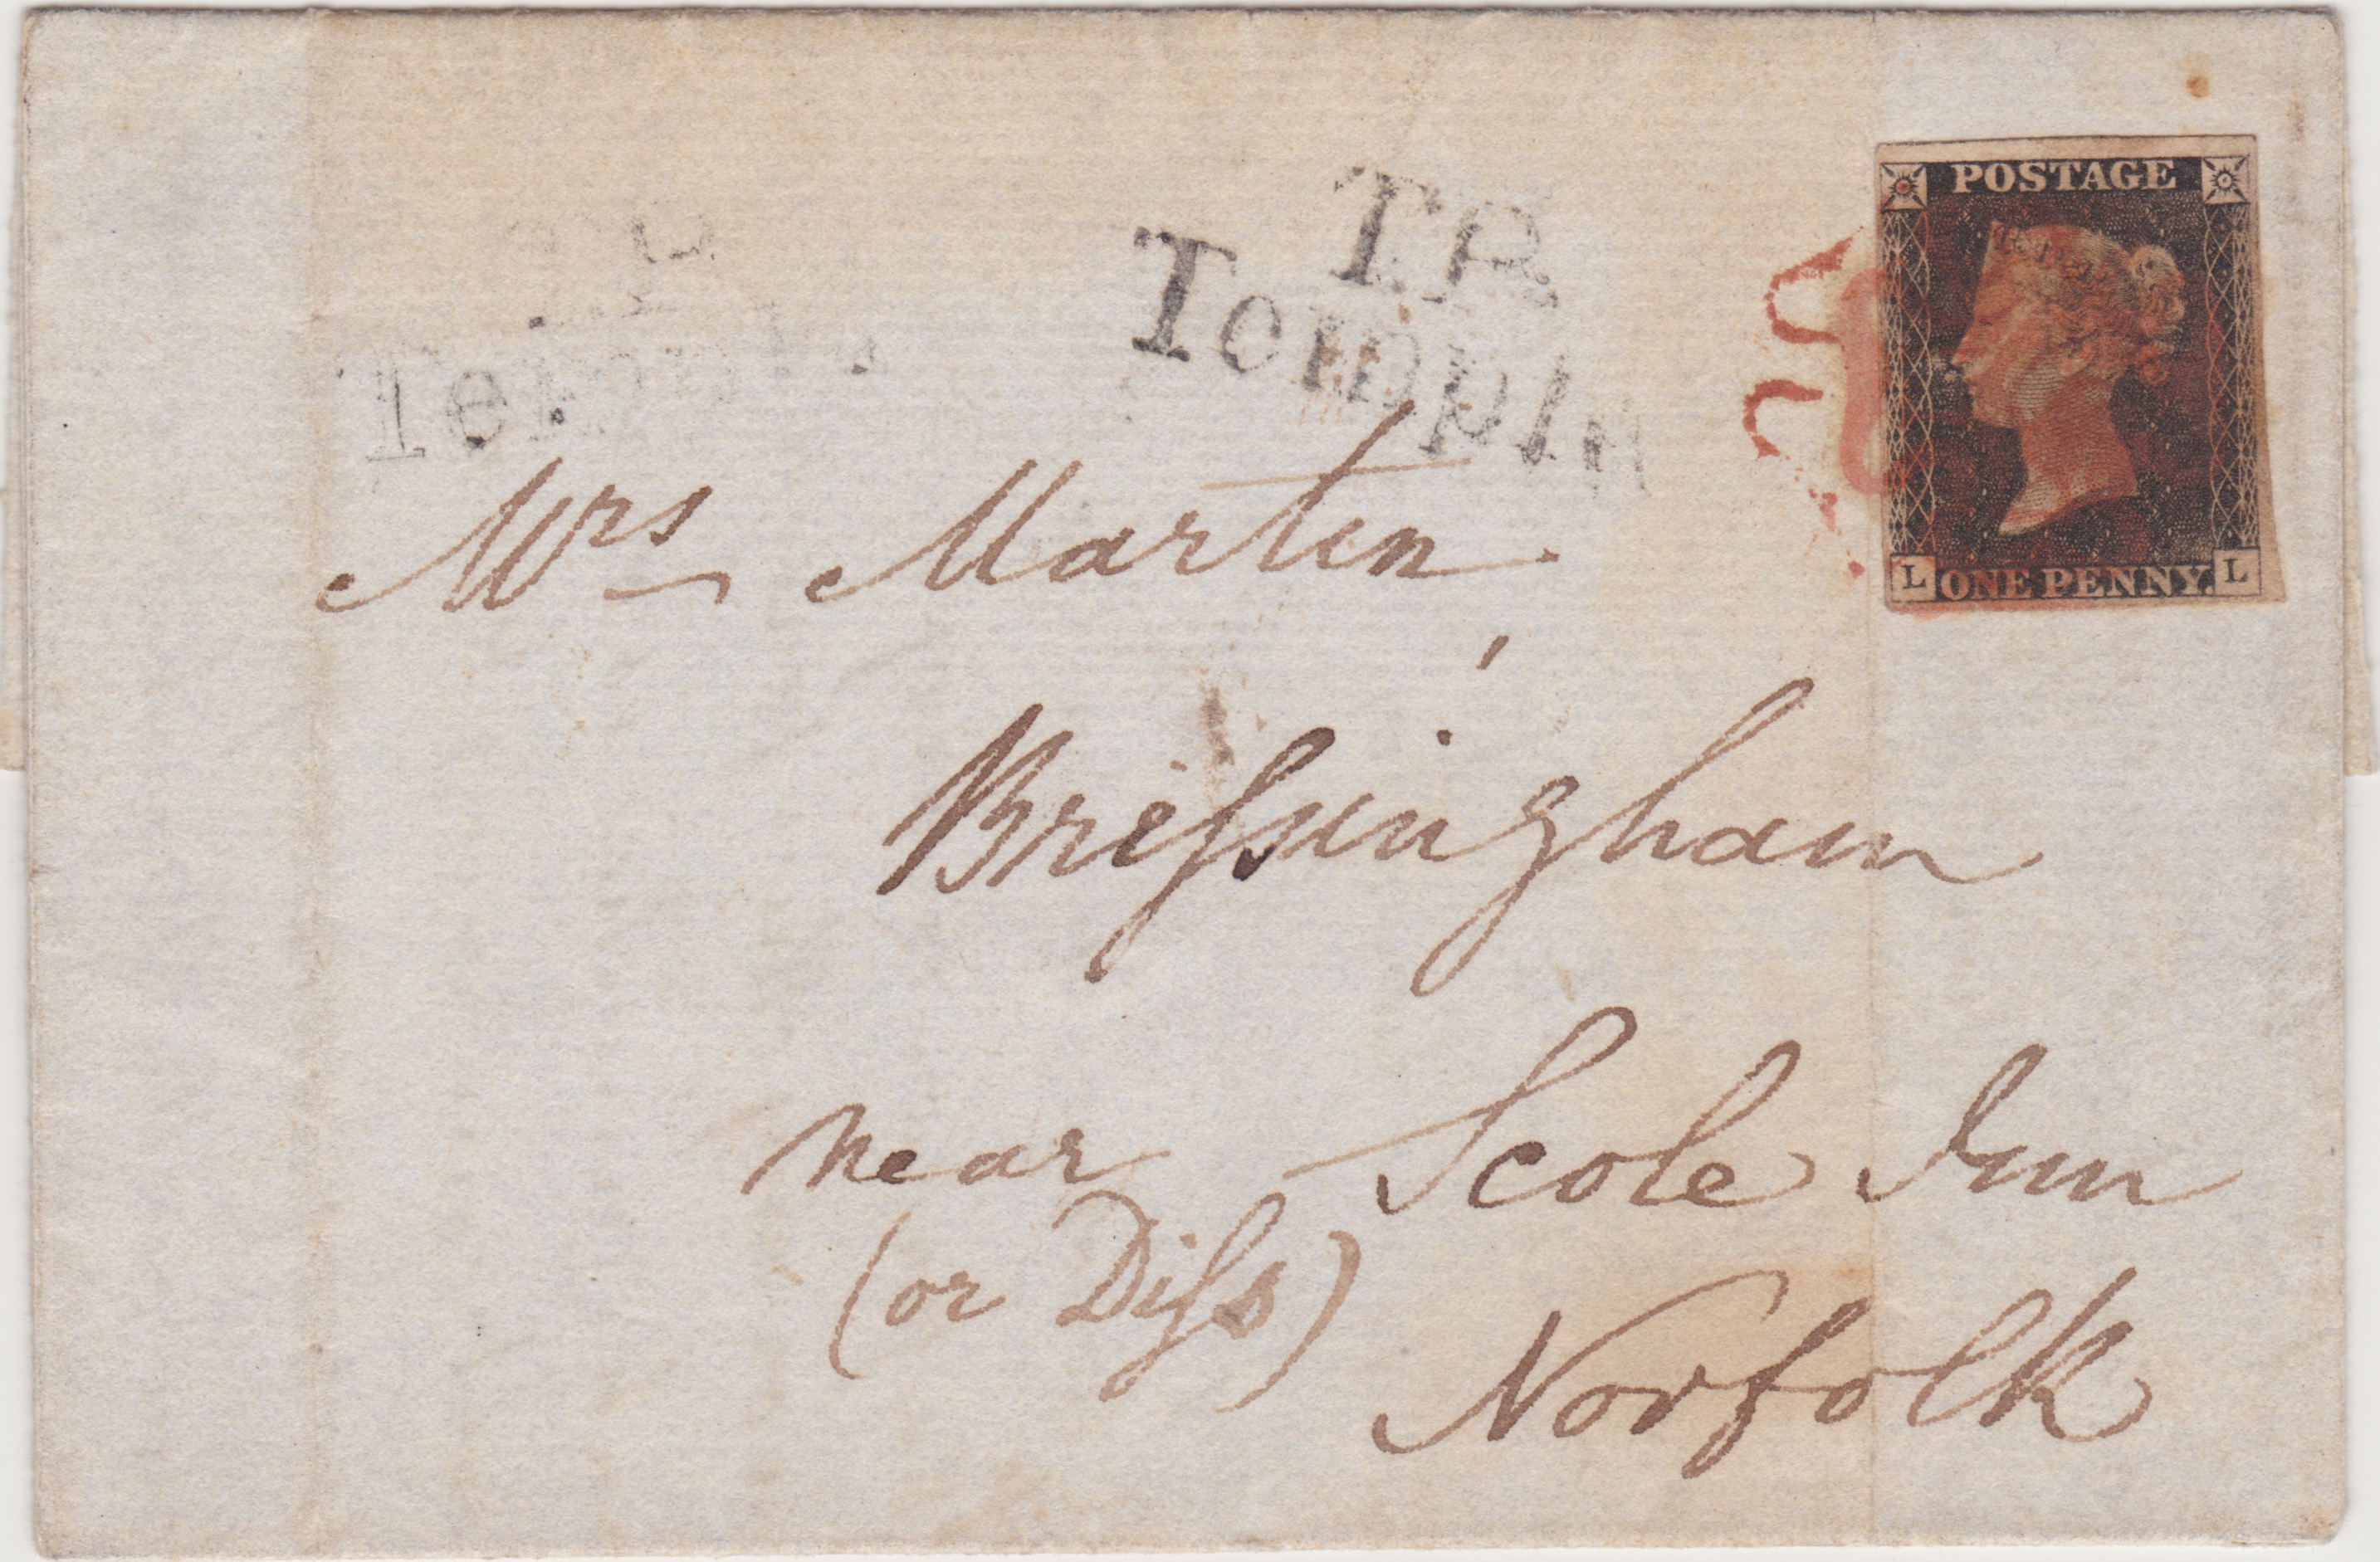 TP
Temple
POSTAGE
L ONE PENNY. L
Mrs Martin
Breſsingham
near Scole Inn
(or Diſs)
Norfolk